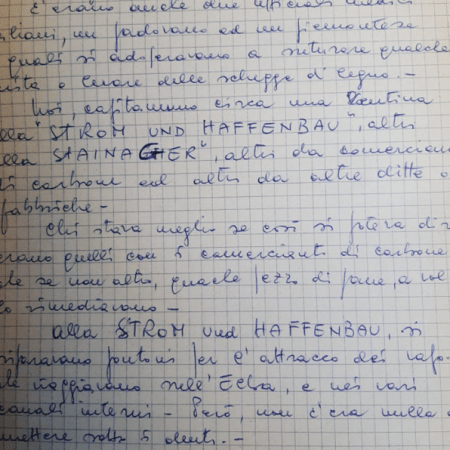 C'erano anche due ufficiali medici
aliani, un padovano ed un piemontese
quali si adoperavano a suturare qualche
ita o levare delle schegge di legno. -
Noi, capitammo circa una ventina
lla "STROM UND HAFFENBAU", altri
lla STAINAGER", altri da comercian
di carbone ed altri da altre ditte o
fabbriche -
Chi stava meglio se così si poteva di
erano quelli con i comercianti di carbone
le se non altro, qualche pezzo di pane, a vol
lo rimediavano -
alla STROM und HAFFENBAU, si
riparavano pontoni per l'attracco dei vapo-
le viaggiavano nell'Elba, e nei vari
canali interni - Però, non c'era nulla d
mettere sotto i denti. -